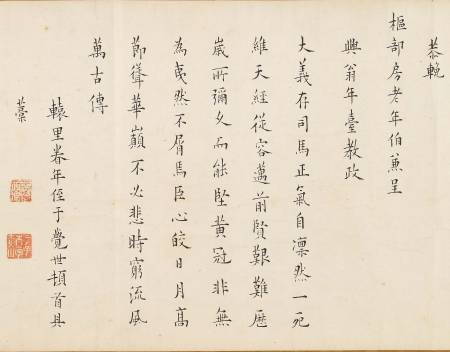 恭輓
樞部房老年伯兼呈
興翁年臺教政
大義存司馬正氣自凛然一死
維天經從容邁前賢艱難歷
歲所彌久而能堅黃冠非無
為夷然不屑焉臣心皎日月高
節聳華巔不必悲時窮流風
萬古傳
轅里眷年侄于覺世頓首具
藁